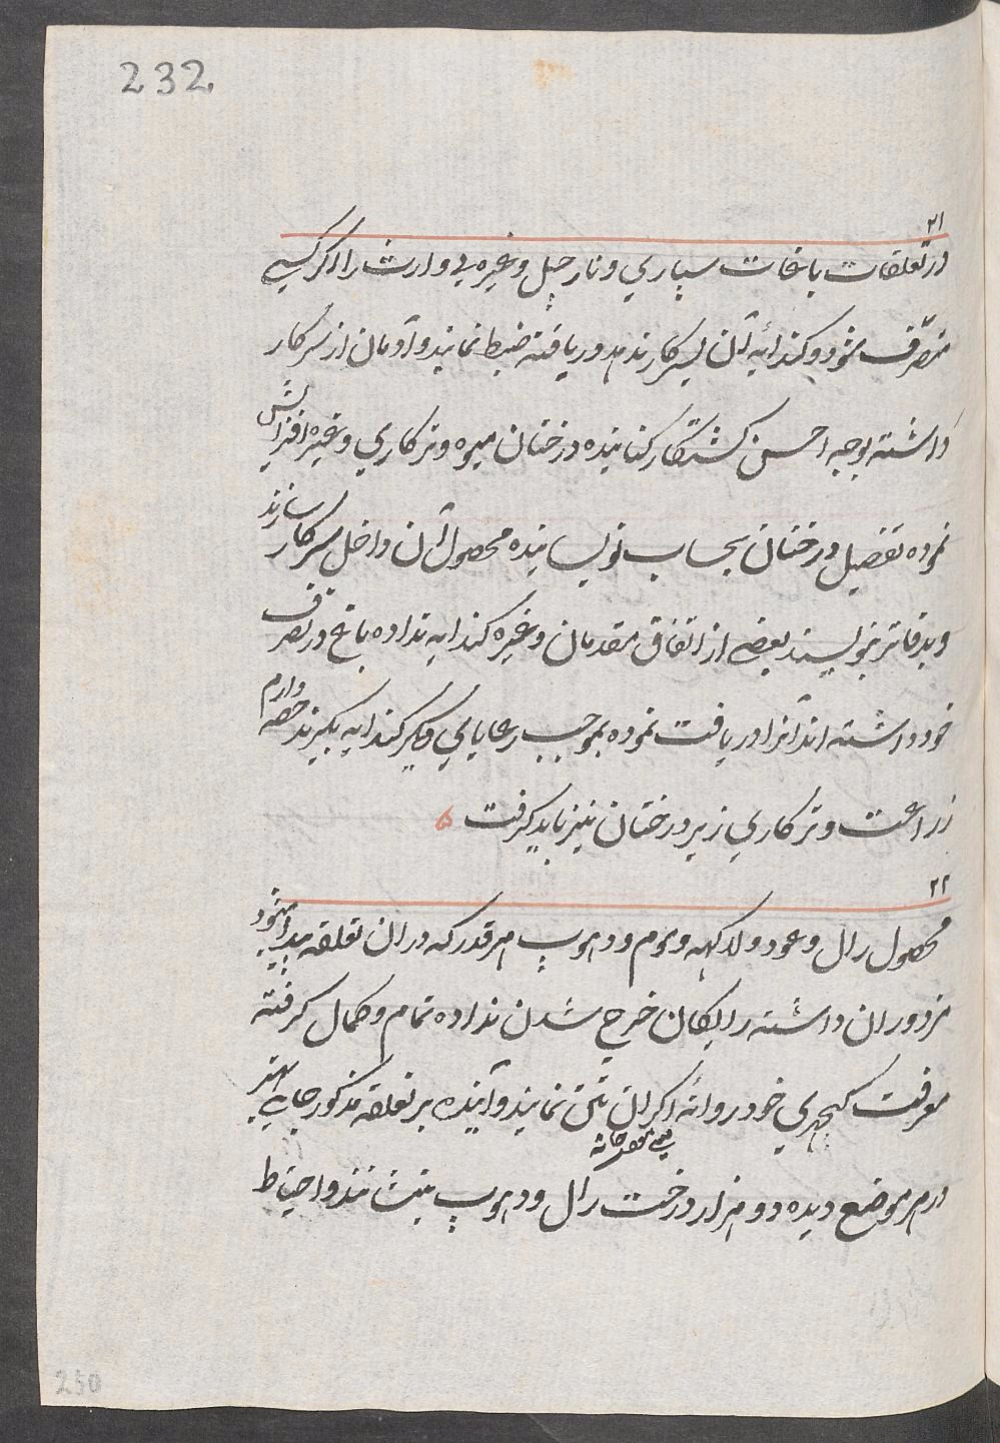 232
۲۱
در تعلقات باغات سپاري و نارجيل و غيره بى وارث را اگر كسى
متصّرف شود و كندائه آن بسركار ندهد دريافته ضبط نمايند و آدمان از سركار
داشته بوجه احسن كشتكار كنانيده درختان ميوه و تركاري و غيره افزايش
نموده تفصيل درختان بحساب نويسانيده محصول آن داخل سركار سازند
و بدفاتر بنويسند بعضى از اتفاق مقدمان و غيره كندايه نداده باغ در تصرف
خود داشته اند آنرا دريافت نموده بموجب رعاياي ديگر كندايه بگيرند حصه وارم
زراعت و تركاري زير درختان نيز بايد گرفت ۵
۲۲
محصول رال و عود و لاكهه و موم و دهوپ هر قدر كه در ان تعلقه پيدا ميشود
مزدوران داشته رايگان خرج شدن نداده تمام و كمال گرفته
معرفت كچهري خود روانه نمايند و آينده بر تعلقه مذكور جاى بهتر
در هر موضع ديده دو هزار درخت رال و دهوپ بنشانند و احتياط
250